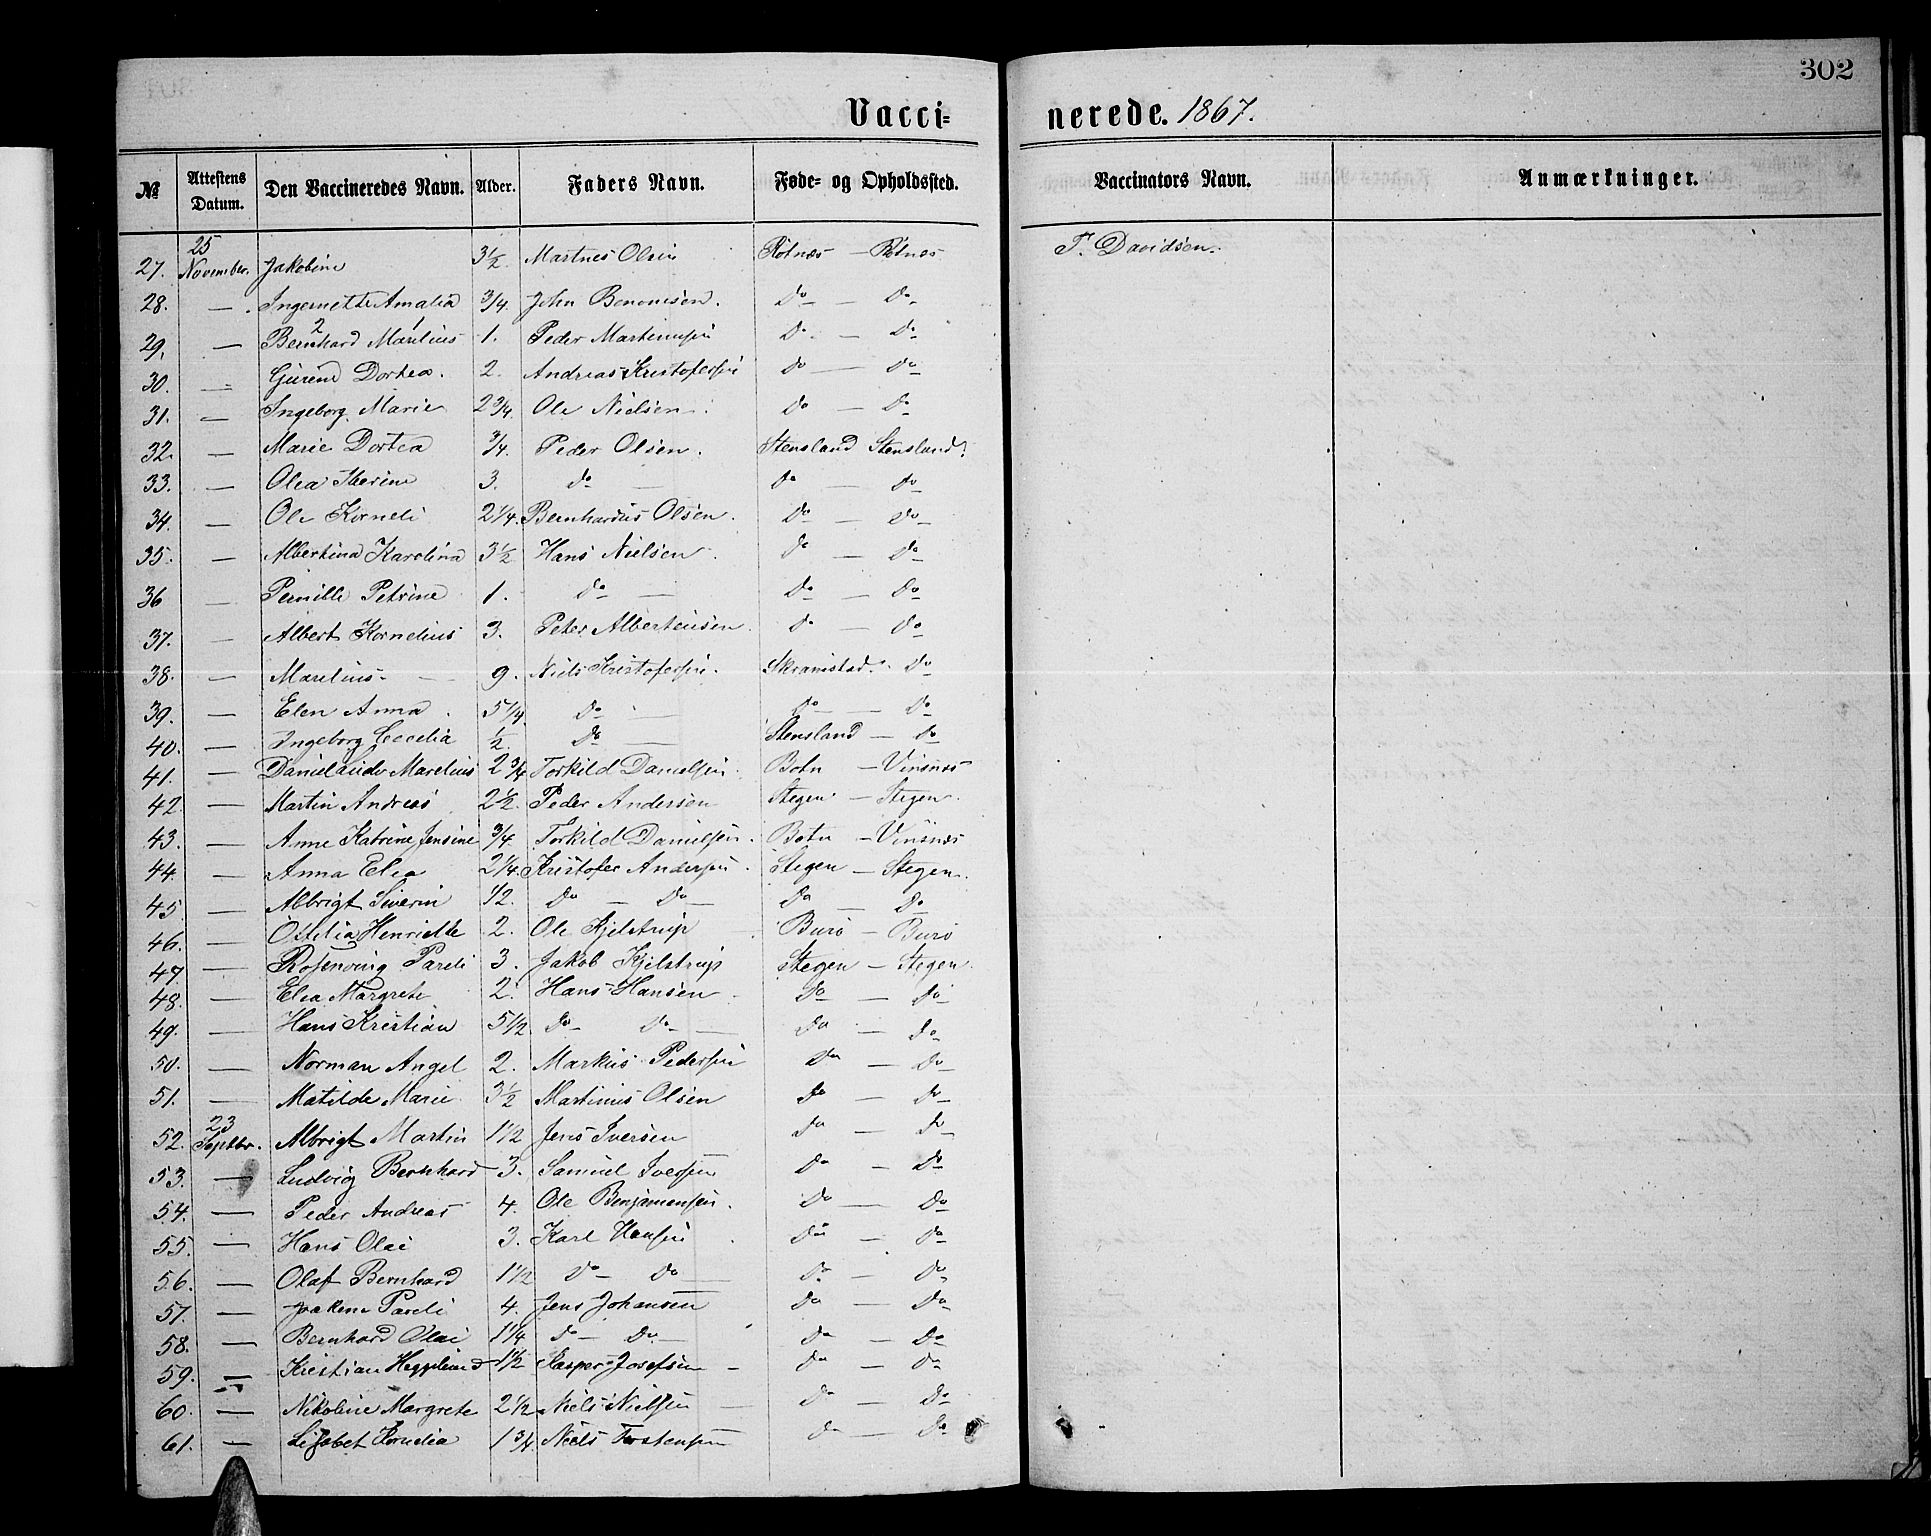 302
Vacci= nerede. 1867.
№ Attestens Datum. Den Vaccineredes Navn. Alder. Faders Navn. Føde= og Opholdssted. Vaccinators Navn. Anmærkninger.
27. 25 November. Jakobine 3½. Martnes Olsen Rotnæs — Rotnæs T. Davidsen.
28. — Ingernette Amalia 3/4. John Benonisen. do — do
29. — Bernhard 2 Marelius 1 1. Peder Martinusen do — do
30. — Gurine Dortea. 2. Andreas Kristofersen do — do
31. — Ingeborg Marie 2 3/4. Ole Nielsen. do — do
32. — Marie Dortea 3/4. Peder Olsen. Stensland Stensland.
33. — Olea Therine 3. do — do — do
34. — Ole Korneli 2 1/4. Bernhardus Olsen. do — do
35. — Albertina Karolina 3½ Hans Nielsen. do — do
36 — Pernille Petrine 1. do — do — do
37. — Albert Kornelius 3. Peter Albertsen. do — do
38. — Marelius — 9. Niels Kristofersen. Skramstad. do
39. — Elen Anna. 5 1/4. do — do — do
40. — Ingeborg Cecelia ½. do — Stensland — do
41. — Danielander Marelius 2 3/4 Torkild Danielsen. Botn — Vinsnæs
42. — Martin Andreas 2½. Peder Andersen Stegen — Stegen.
43. — Anne Katrine Jensine 3/4. Torkild Danielsen. Botn — Vinsnæs
44. — Anna Elea 2 1/4. Kristofer Andersen. Stegen — Stegen.
45. — Albrigt Siverin 1/2. do — do — do — do
46. — Ostelia Henriette 2. Ole Kjelstrup Burø — Burø
47. — Rosenving Pareli 3. Jakob Kjelstrup Stegen — Stegen.
48. — Elea Margrete 2. Hans Hansen do — do
49. — Hans Kristian 5 1/2 do — do — do — do
50. — Norman Angel 2. Markus Pedersen do — do
51. — Matilde Marie 3½ Martinus Olsen do — do
52. 23 Septbr. Albrigt Martin 1 1/2 Jens Iversen do — do
53. — Ludvig Bernhard 3. Samuel Iversen do — do
54. — Peder Andreas 4. Ole Benjamensen. do — do
55. — Hans Olai 3. Karl Hansen do — do
56. — Olaf Bernhard 1 1/2 do — do — do — do
57. — Joakim Pareli 4. Jens Johansen do — do
58. — Bernhard Olai 1 1/4 do — do — do — do
59. — Kristian Hegglund 1½ Kasper Josefsen — do — do
60. — Nikoline Margrete 2 1/2 Niels Nielsen — do — do
61. — Lisabet Kornelia 1 3/4 Niels Torstensen do — do